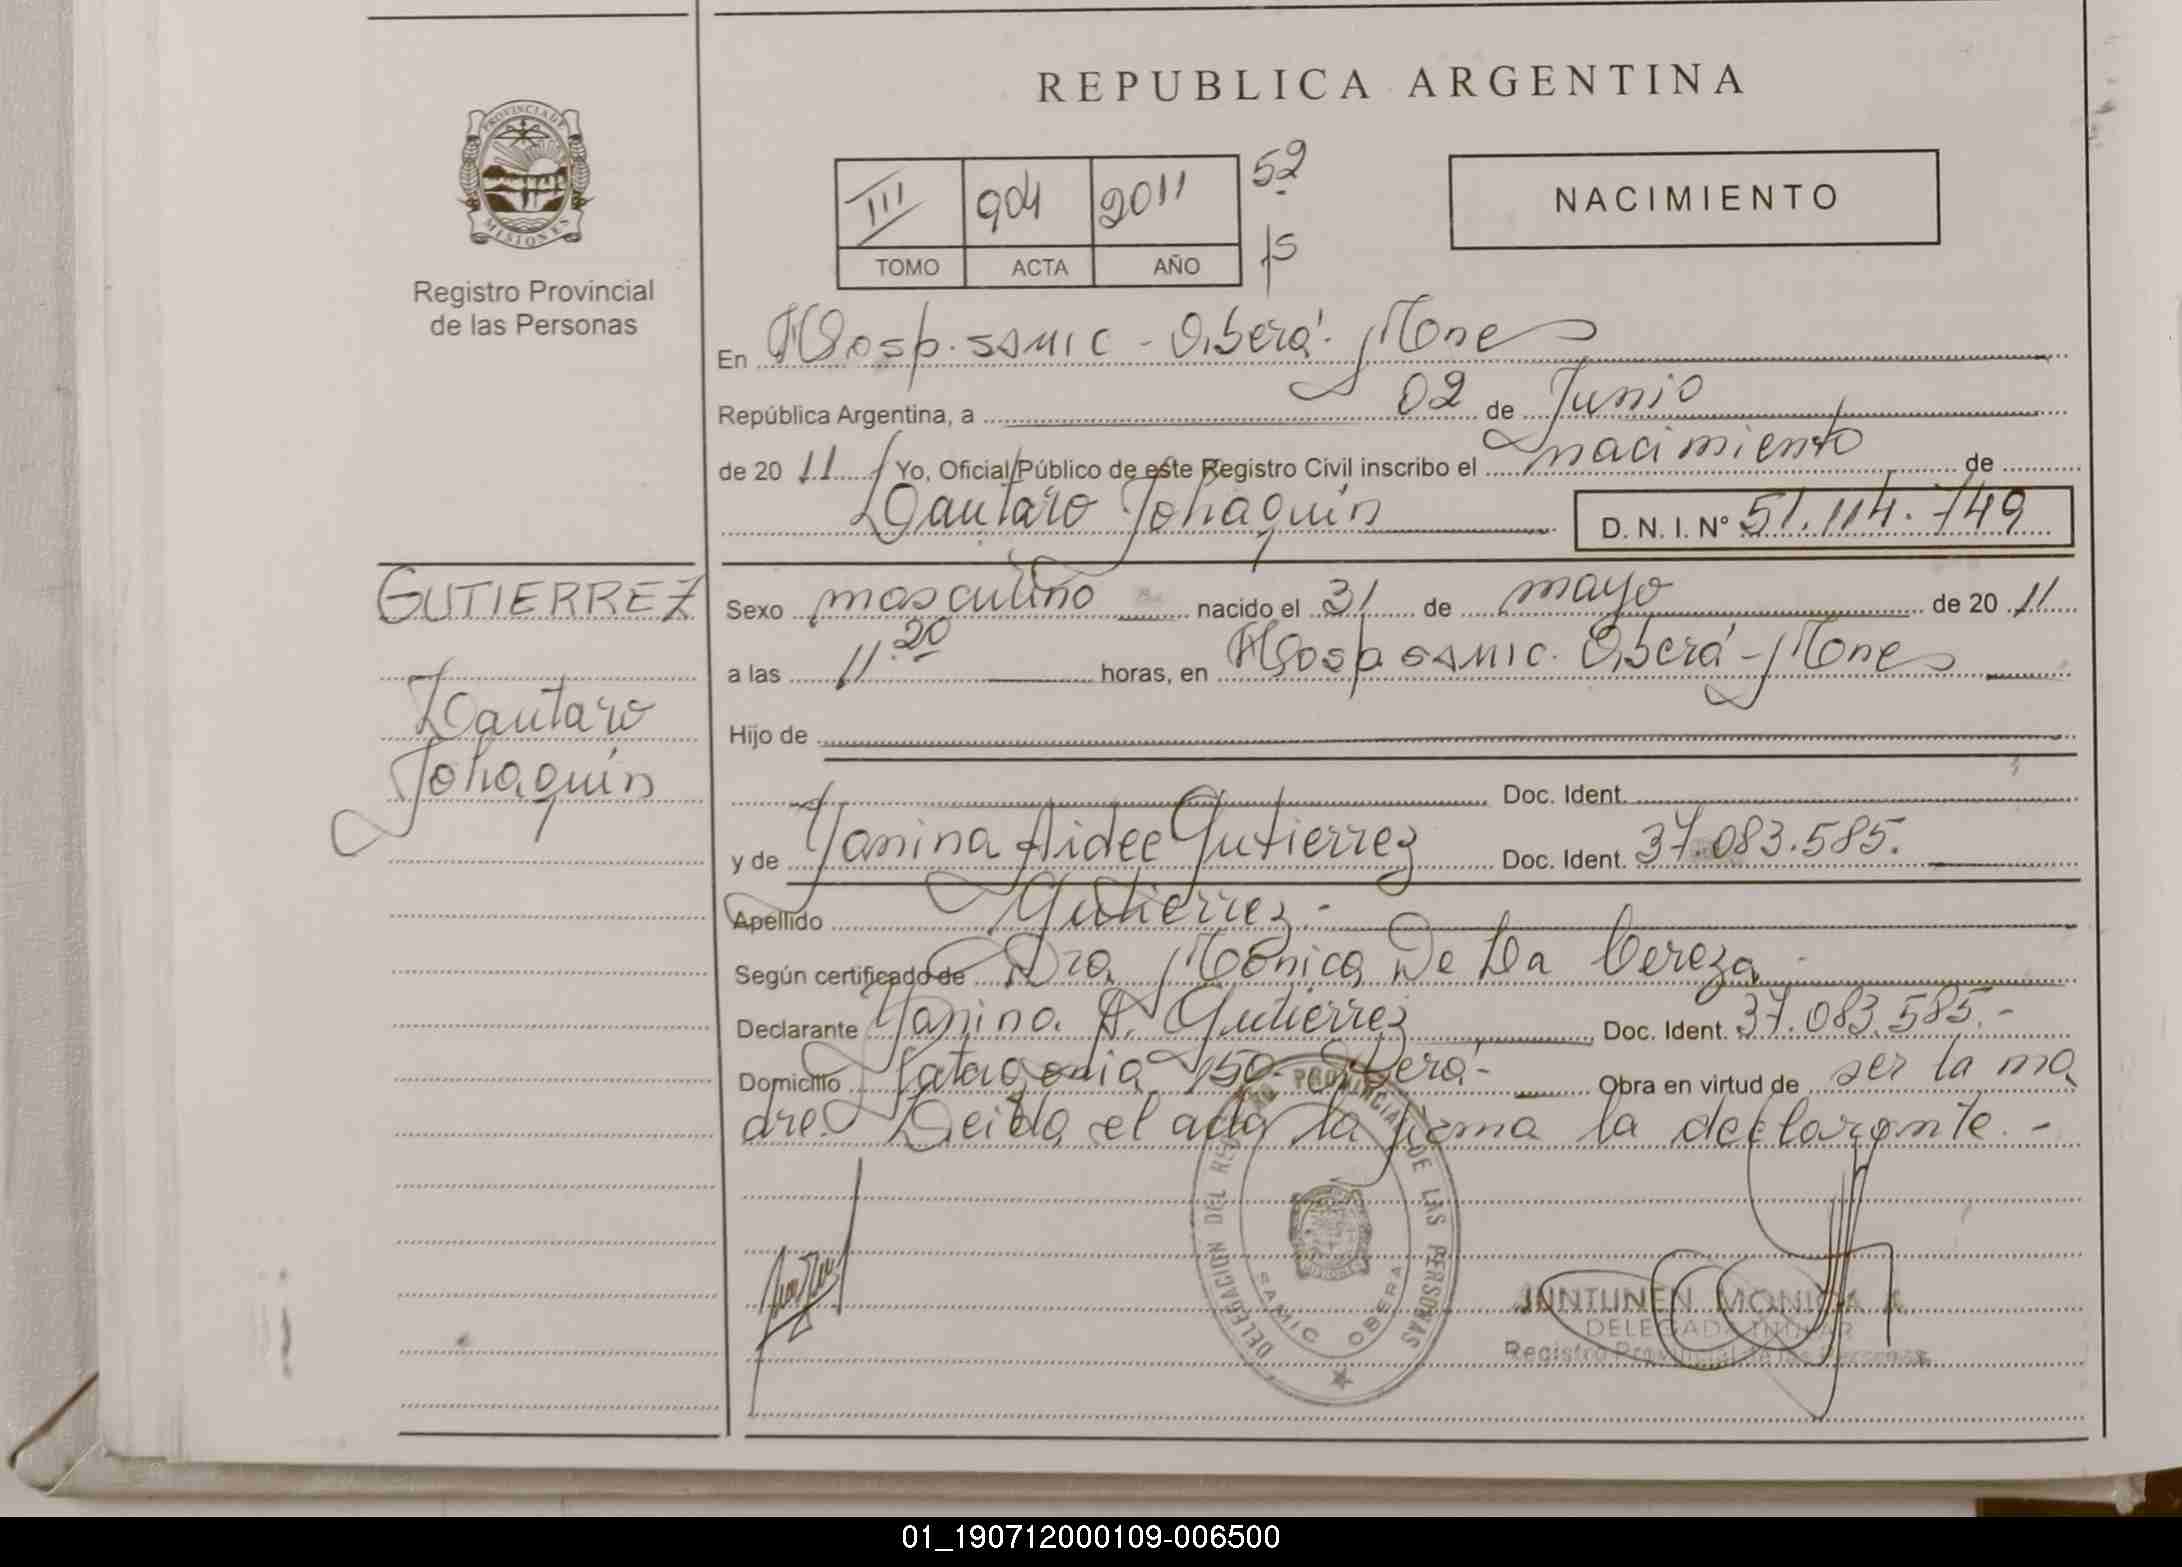 REPUBLICA ARGENTINA
PROVINCIA DE
MISIONES
Registro Provincial
de las Personas
III 904 2011 52
TOMO ACTA AÑO 15
NACIMIENTO
En Hosp. SAMIC - Oberá - Mnes
República Argentina, a 02 de Junio
de 20 11 Yo, Oficial Público de este Registro Civil inscribo el nacimiento de
Lautaro Johaquín D. N. I. N° 51.114.749
GUTIERREZ
Lautaro
Johaquín
Sexo masculino nacido el 31 de mayo de 20 11
a las 11.20 horas, en Hosp SAMIC. Oberá - Mnes
Hijo de
Doc. Ident.
y de Yanina Aidee Gutierrez Doc. Ident. 37.083.585.
Apellido Gutierrez -
Según certificado de Dra Mónica De La Cereza
Declarante Yanina A. Gutierrez Doc. Ident. 37.083.585.-
Domicilio Patagonia 150 - Oberá - Obra en virtud de ser la ma
dre. Leida el acta la firma la declarante. -
DELEGACION DEL REGISTRO PROVINCIAL DE LAS PERSONAS
SAMIC OBERA
JUNTUNEN MONICA
DELEGADA TITULAR
Registro Provincial de las Personas
01_190712000109-006500